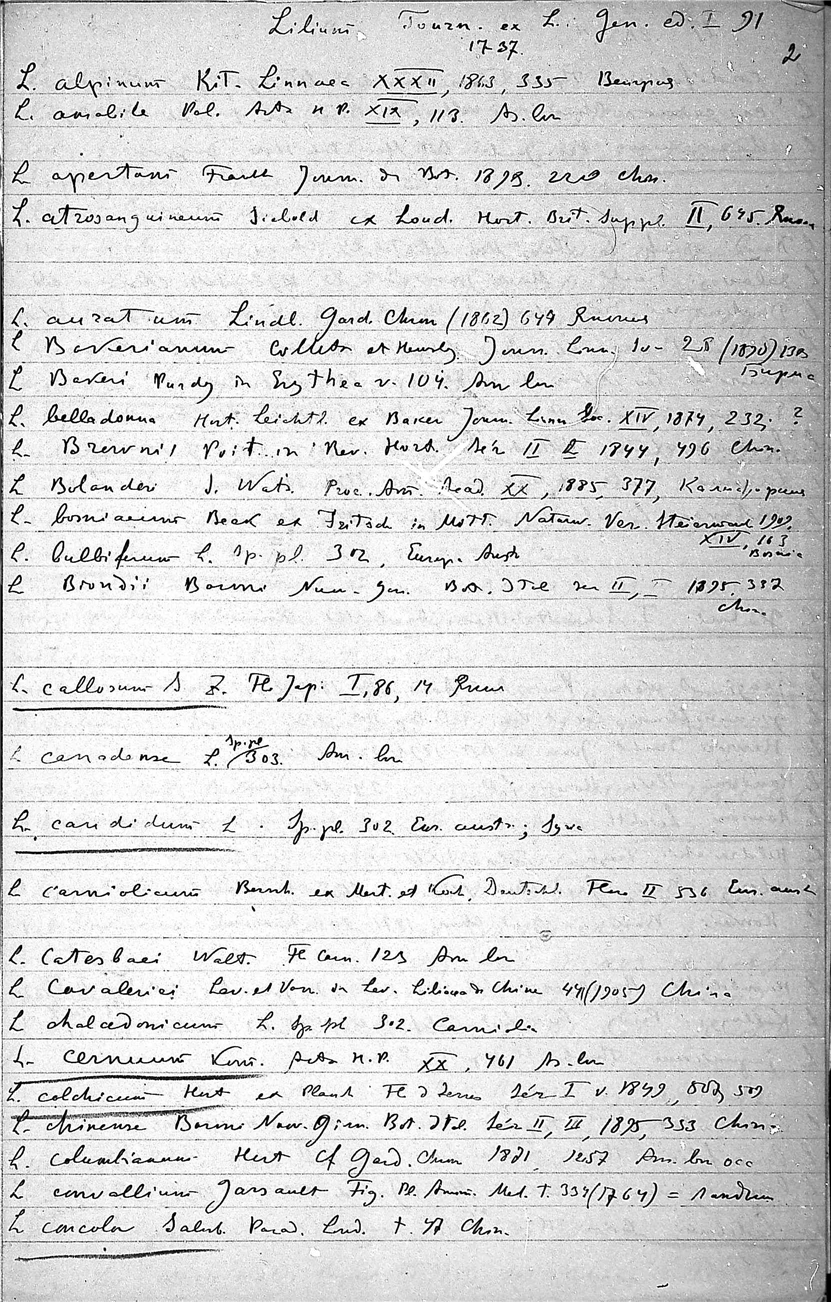 Lilium Tourn. ex L. Gen. ed. I 91
1737.
2
L. alpinum Kit. Linnaea XXXII, 1863, 335 Венгрия
L. amabile Pal. Acta H. P. XIX, 113. As. bor
L apertum Franch Journ. de Bot. 1898. 220 Chin.
L. atrosanguineum Siebold ex Loud. Hort. Brit. Suppl. II, 645.
L. auratum Lindl. Gard. Chron (1862) 644
L Bakerianum Collett et Hemsley. Journ. Linn. 28 (1890) 138
Бирма
L Bakeri Purdy in Erythea v. 104. Am bor
L. belladonna Hort. Leichtl. ex Baker Journ. Linn Soc. XIV, 1874, 232. ?
L. Brownii Poit. in Rev. Hort. Sér II 1844, 496 Chin.
L Bolanderi S. Wats. Proc. Am. Acad XX, 1885, 377,
L. bosniacum Beck ex Fritsch in Mitt. Naturw. Ver. Steiermark 1909,
XLV, 163
Bosnia
L. bulbiferum L. Sp. pl. 302, Europ. Austr
L Biondii Baroni Nuov. Gior. Bot. Ital ser II, 1895. 337
Chin.
L. callosum S Z. Fl. Jap. I, 86, 14
L canadense L. Sp. pl 303. Am. bor
L. candidum L. Sp. pl. 302 Eur. austr; Syria
L carniolicum Bernh. ex Mert. et Koch, Deutschl. Flora II 536 Eur. austr
L. Catesbaei Walt. Fl Car. 123 Am bor
L Cavaleriei Lev. et Van. in Lev. Liliac. de Chine 44 (1905) China
L chalcedonicum L. Sp pl 302. Carniola
L. cernuum Kom. Acta H. P. XX, 461 As. bor
L. colchicum Hort ex Planch Fl d Serres Sér I v. 1849, 509
L. chinense Baroni Nuov. Giorn. Bot. Ital. Sér II, II, 1895, 333 Chin.
L. columbianum Hort Cf Gard. Chron 1871, 1257 Am. bor occ
L convallium Garsault Fig. Pl. Anim. Med. t. 334 (1764) =
L concolor Salisb. Parad. Lond. t. 47 Chin.